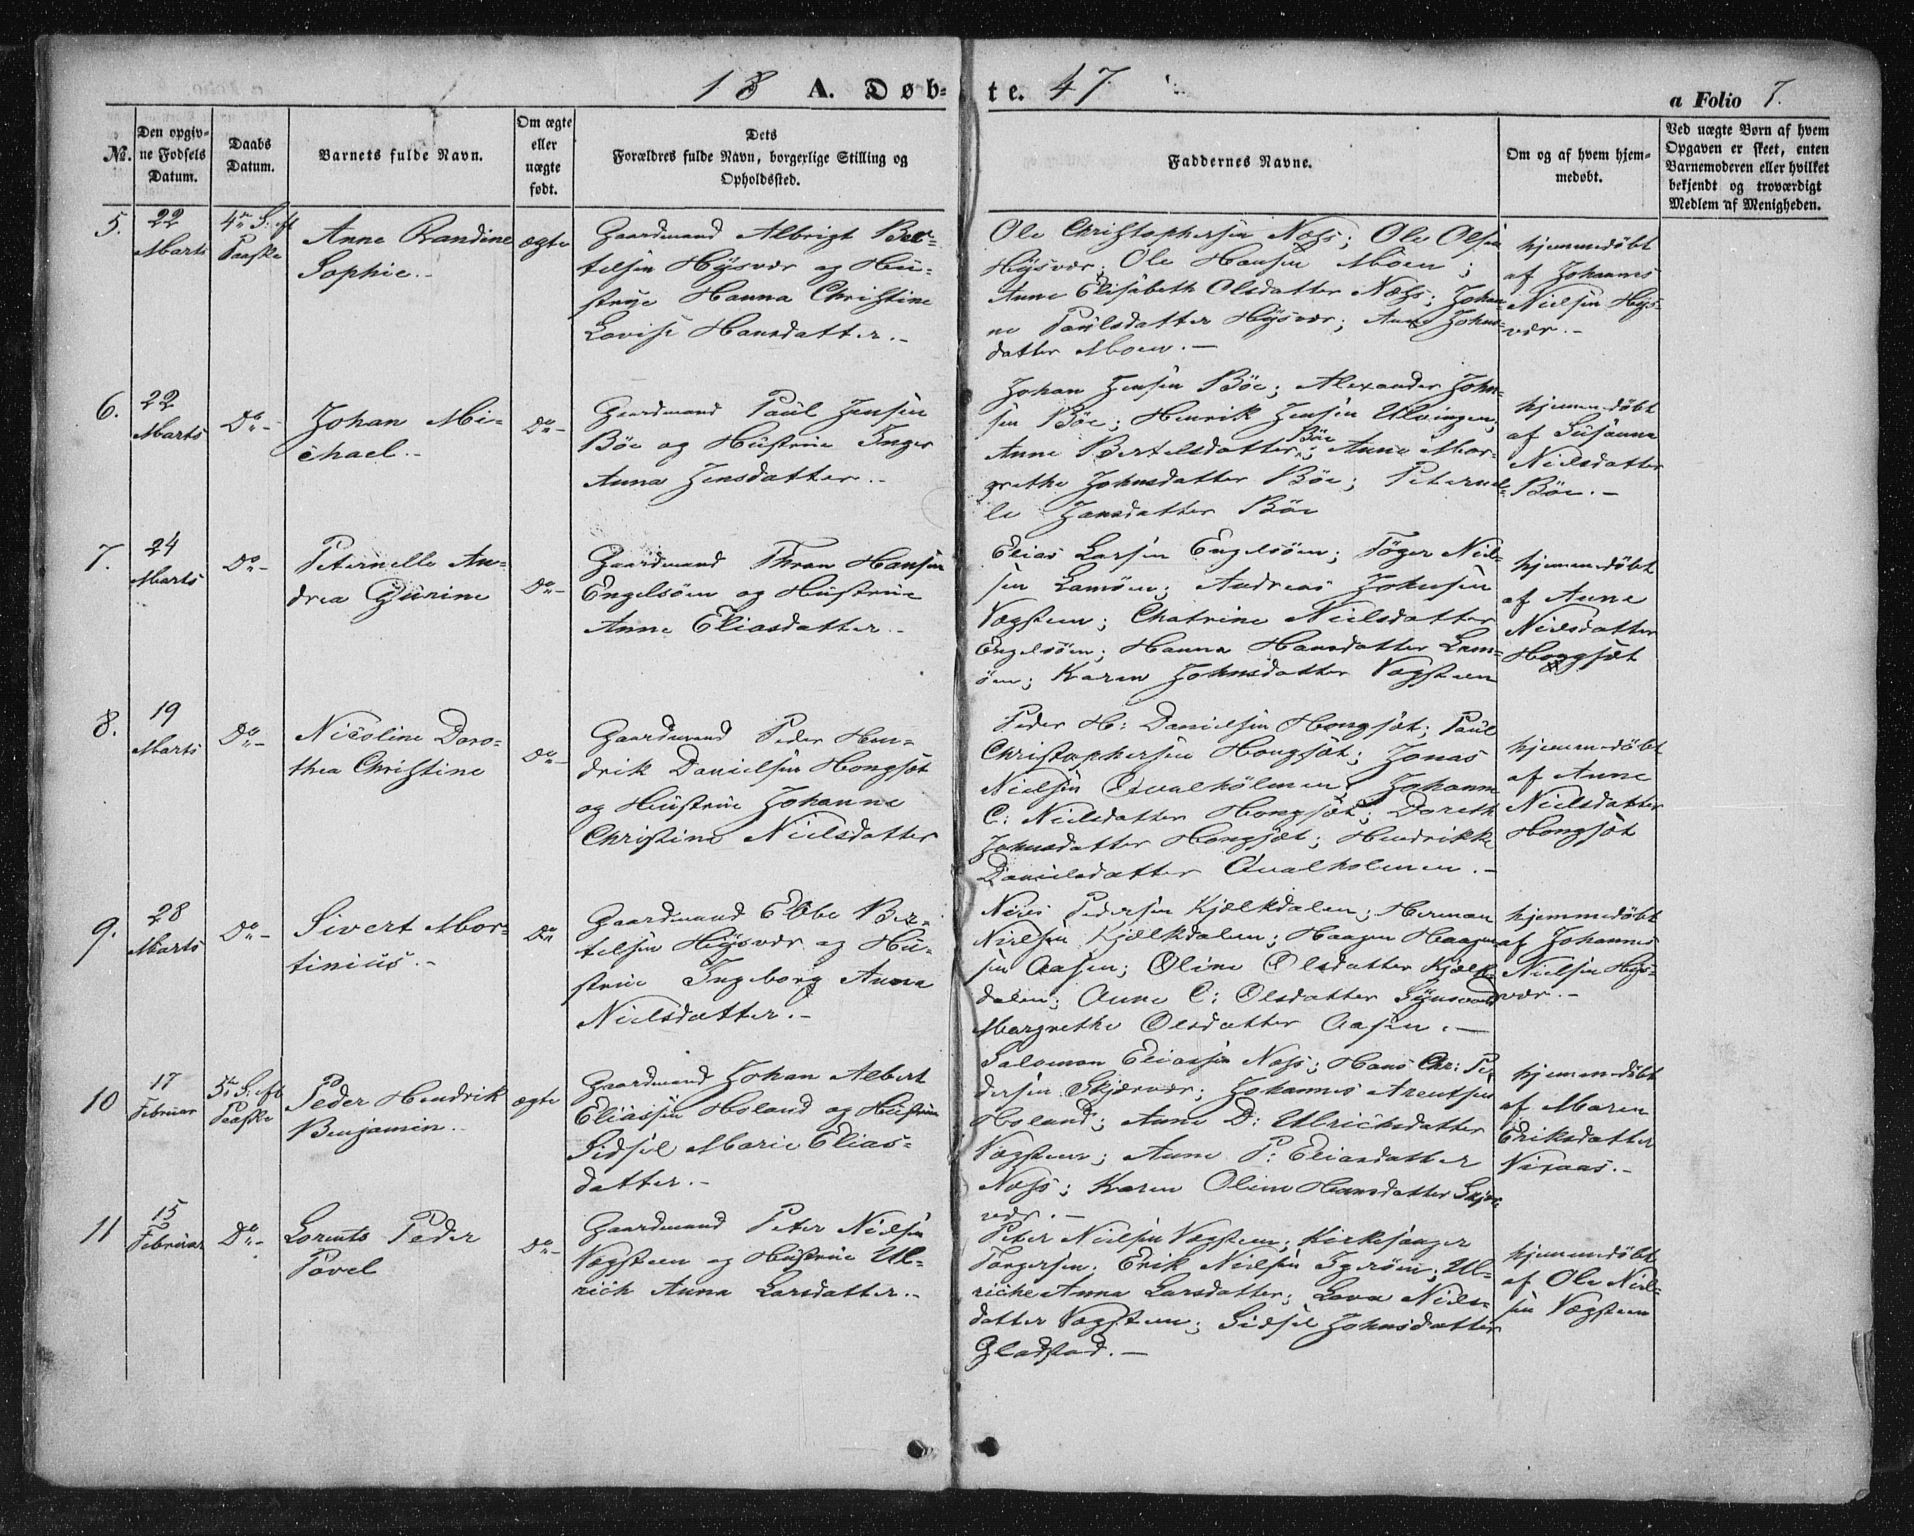 18 A. Døb-
te. 47
a Folio 7.
No.
Den opgiv-
ne Fødsels
Datum.
Daabs
Datum.
Barnets fulde Navn.
Om ægte
eller
uægte
født.
Dets
Forældres fulde Navn, borgerlige Stilling og
Opholdssted.
Faddernes Navne.
Om og af hvem hjem-
medøbt.
Ved uægte Børn af hvem
Opgaven er skeet, enten
Barnemoderen eller hvilket
bekjendt og troværdigt
Medlem af Menigheden.
5.
22
Marts
4de S. eft
Paaske
Anne Randine
Sophie.-
ægte
Gaardmand Albrigt Ber-
telsen Hysvær og Hu-
strue Hanna Christine
Lovise Hansdatter.-
Ole Christophersen Næss; Ole Olsen
Hysvær; Ole Hansen Moen;
Anne Elisabeth Olsdatter Næss; Johan-
ne Paulsdatter Hysvær; Anne Johns-
datter Moen.-
hjemmedøbt
af Johannes
Nielsen Hys-
vær.-
6.
22
Marts
Do-
Johan Mi-
chael.-
Do-
Gaardmand Paul Jensen
Böe og Hustrue Inger
Anna Jensdatter.-
Johan Jensen Böe; Alexander John-
sen Böe; Henrik Jensen Ulvingen;
Anne Bertelsdatter Böe; Anne Mar-
grethe Johnsdatter Böe; Peternel-
le Jansdatter Böe
hjemmedøbt
af Susanna
Nielsdatter
Böe.-
7.
24
Marts
Do-
Peternelle An-
drea Gurine
Do-
Gaardmand Thron Hansen
Engelsöen og Hustrue
Anne Eliasdatter.-
Elias Larsen Engelsöen; Töger Niel-
sen Lamöen; Andreas Johnsen
Vægsteen; Chatrine Nielsdatter
Engelsöen; Hanna Hansdatter Lam-
öen; Karen Johnsdatter Vægsteen
hjemmedøbt
af Anne
Nielsdatter
Hongsæt
8.
19
Marts
Do-
Nicoline Doro-
thea Christine
Do-
Gaardmand Peder Hen-
drik Danielsen Hongsæt
og Hustrue Johanne
Christine Nielsdatter
Peder H: Danielsen Hongsæt; Paul
Christophersen Hongsæt; Jonas
Nielsen Qvalholmen; Johanne
C: Nielsdatter Hongsæt; Doreth
Johnsdatter Hongsæt; Hendrikke
Danielsdatter Qvalholmen.-
hjemmedøbt
af Anne
Nielsdatter
Hongsæt
9.
28
Marts
Do-
Sivert Mor-
tinius.-
Do
Gaardmand Ebbe Ber-
telsen Hysvær og Hu-
strue Ingeborg Anna
Nielsdatter.-
Niels Pedersen Kjælkdalen; Herman
Nielsen Kjælkdalen; Haagen Haagen-
sen Aasen; Oline Olsdatter Kjælk-
dalen; Anne C: Olsdatter
Margrethe Olsdatter Aasen.-
hjemmedøbt
af Johannes
Nielsen Hys-
vær.-
10
17
Februar
5te S. eft
Paaske
Peder Hendrik
Benjamin.-
ægte
Gaardmand Johan Albert
Eliassen Holand og Hustrue
Sidsel Marie Elias-
datter.-
Salomon Eliassen Næss; Hans Chr: Pe-
dersen Skjærvær; Johannes Arentsen
Holand; Anne D: Ulrichsdatter
Vægsteen; Anne P: Eliasdatter
Næss; Karen Oline Hansdatter Skjær-
vær.-
hjemmedøbt
af Maren
Eriksdatter
Vixaas.-
11
15
Februar
Do-
Lorents Peder
Povel
Do-
Gaardmand Peter Nielsen
Vægsteen og Hustrue Ul-
rich Anna Larsdatter.-
Peter Nielsen Vægsteen; Kirkesanger
Torgersen; Erik Nielsen Igeröen; Ul-
riche Anna Larsdatter; Lava Niels-
datter Vægsteen; Sidsel Johnsdatter
Gladstad.-
hjemmedøbt
af Ole Niel-
sen Vægsteen